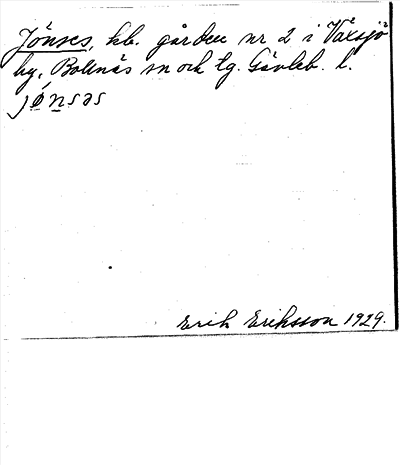 Jönses, hb. gården nr 2 i Växsjö
by, Bollnäs sn och tg. Gävleb. l.
jönsəs
Erik Eriksson 1929.